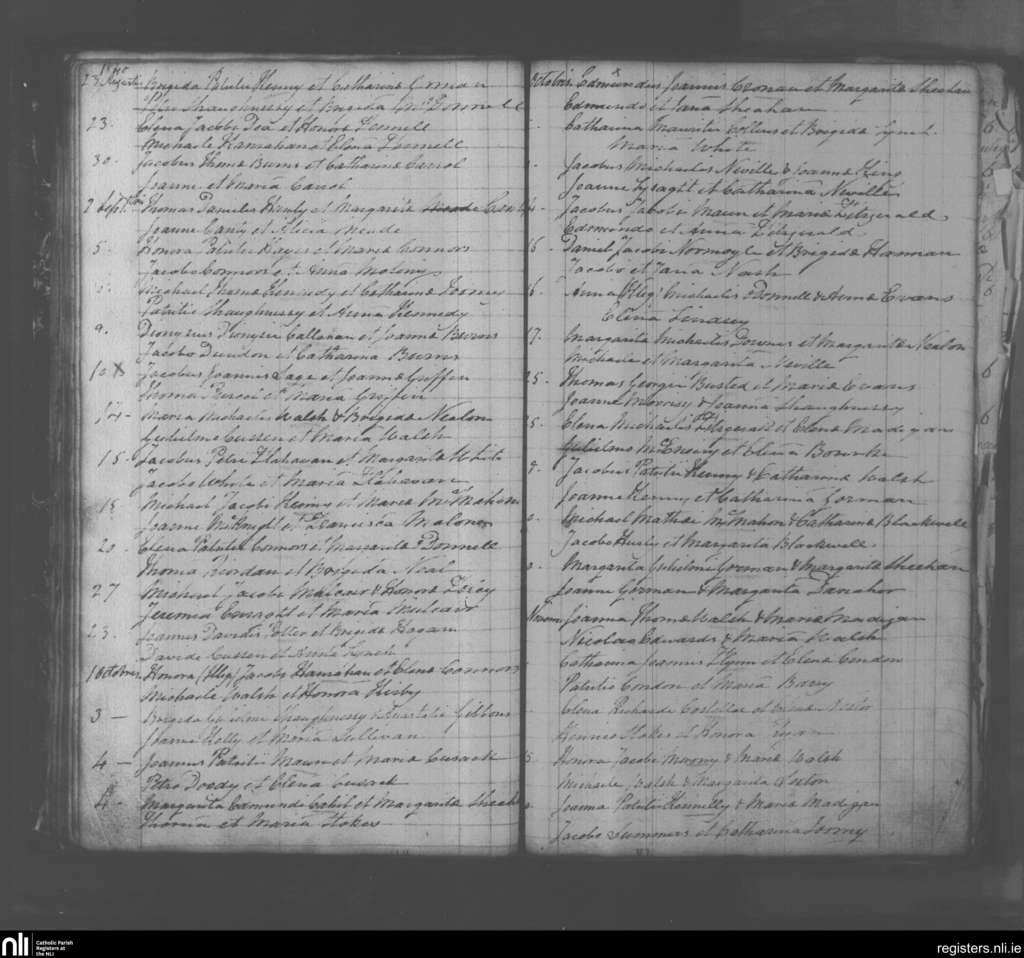 23 Augusti Brigida Patritii Kenny et Catharina Gorman
Shaughnessy et Brigida McDonnell
23. Elena Jacobi Dea et Honora Fennell
Michaele Hanrahan Elena Fennell
30. Jacobus Thoma Burns et Catharina Carrol
Joanne et Maria Carrol
2 Septbris Thomas Danielis Hanly et Margarita
Joanne Canty et Alicia Meade
5. Honora Patritii Hayes et Maria Connors
Jacobo Connors et Anna Molony
Michael Thoma Kennedy et Catharina Toomy
Patritio Shaughnessy et Anna Kennedy
9. Dionysius Dionysii Callahan et Joanna Burns
Jacobo Dundon et Catharina Burns
10 X Jacobus Joannis Sage et Joanna Griffin
Thoma et Maria Griffin
14 - Maria Michaelis Walsh & Brigida Nealon
Gulielmo Cussen et Maria Walsh
15. Jacobus Petri Flahavan et Margarita White
Jacobo White et Maria Flahavan
18 Michael Jacobi Heany et Maria McMahon
Joanne McKnight et Francisca Malone
20 - Elena Patritii Connors et Margarita O'Donnell
Thoma Riordan et Brigida Neal
27 Michael Jacobi Mulcair & Honora
Jeremia et Maria Mulcair
23. Joannes Davidis Potter et Brigida Hogan
Davide Cussen et Anna Lynch
1 Octobris Honora (Illeg) Jacobi Hanrahan et Elena Connors
Michaele Walsh et Honora Kirby
3 - Brigida Gulielmi Shaughnessy & Anastatia Gibbons
Joanne Kelly et Maria Sullivan
4 - Joannes Patritii Maun et Maria Cusack
Petro Doody et Elena Cusack
4 - Margarita Edmundi Cahil et Margarita Sheeh
Thoma et Maria Stokes
Octobris Edmundus Joannis Cronan et Margarita Sheehan
Edmundo et Anna Sheahan
Catharina Mauritii Collins et Brigida Lynch
Maria White
Jacobus Michaelis Neville & Joanna King
Joanne Lysaght et Catharina Neville
Jacobus Jacobi Maun et Maria Fitzgerald
Edmundo et Anna Fitzgerald
Daniel Jacobi Normoyle et Brigida Hannan
Jacobo et Maria Nash
Anna (Illeg) Michaelis O'Donnell & Anna Evans
Elena Lindsey
17. Margarita Michaelis Downes et Margarita Nealon
Michaele et Margarita Neville
25 - Thomas Georgii Busted et Maria Evans
Joanne Morrissy & Joanna Shaughnessy
25. Elena Michaelis Fitzgerald et Elena Madigan
Gulielmo McEniry et Elena Bourke
Jacobus Patritii Kenny & Catharina Walsh
Joanne Kenny et Catharina Gorman
Michael Mathai McMahon & Catharina Blackwell
Jacobo Hurly et Margarita Blackwell
Margarita Gulielmi Gorman & Margarita Sheehan
Joanne Gorman & Margarita
Joanna Thoma Walsh & Maria Madigan
Nicolao Edwards & Maria Walsh
Catharina Joannis Flynn et Elena Condon
Patritio Condon et Maria
Elena Richardi Costelloe et
Stokes et Honora Ryan
Honora Jacobi Moroney & Maria Walsh
Michaele Walsh & Margarita
Joanna Patritii Kennelly & Maria Madigan
Jacobo Summers et Catharina Toomy
nli
Catholic Parish
Registers at
the NLI
registers.nli.ie